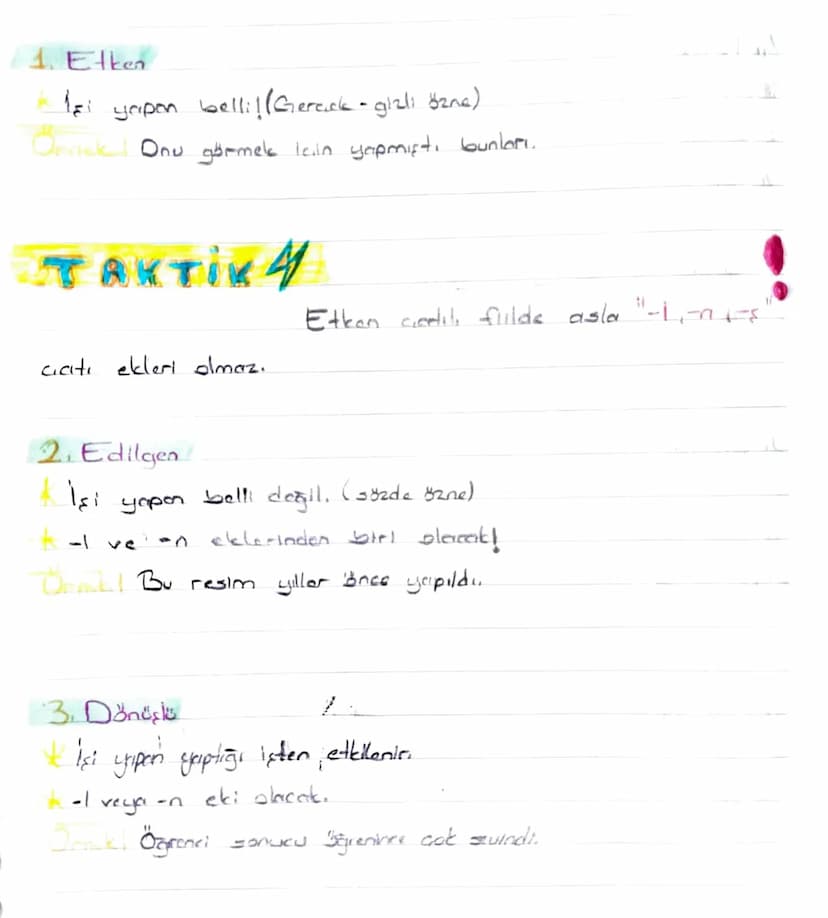 1. Etken
İşi yapan belli! (Gerçek - gizli özne)
Örnek! Onu görmek için yapmıştı bunları.
TAKTİK 4
!
Etken çatılı fiilde asla "-l, -n, -ş"
çatı ekleri olmaz.
2. Edilgen
İşi yapan belli değil. (sözde özne)
-l ve -n eklerinden biri olacak!
Örnek! Bu resim yıllar önce yapıldı.
3. Dönüşlü
İşi yapan yaptığı işten etkilenir.
-l veya -n eki olacak.
Örnek! Öğrenci sonucu öğrenince çok sevindi.